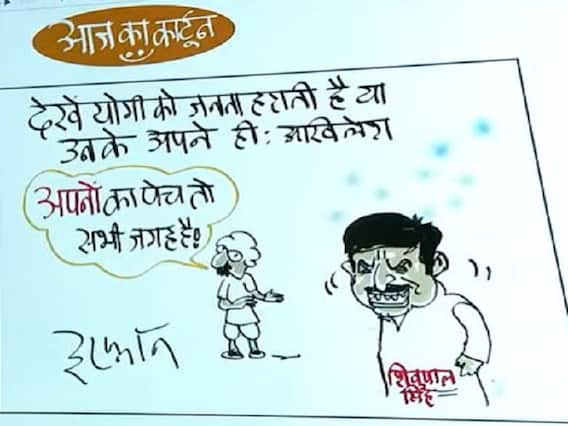 आज का कार्टून
देखें योगी को जनता हराती है या
उनके अपने ही : अखिलेश
अपनों का पेच तो
सभी जगह है!
इरफ़ान
शिवपाल
सिंह